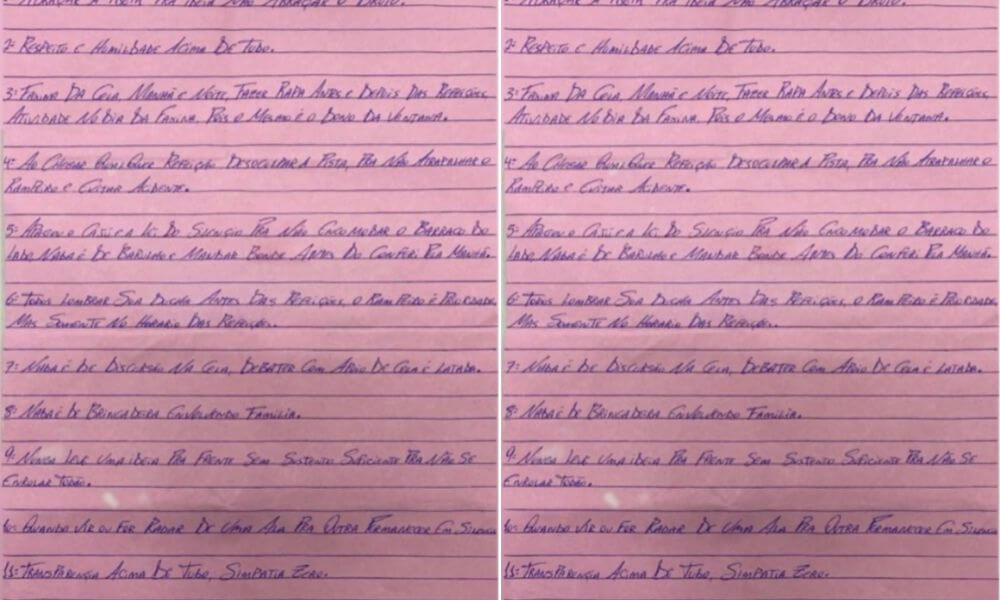 A Ideia Pra Ideia Não Abraçar O
2º Respeito e Humildade Acima De Tudo.
3º Faxina Da Cela, Manhã e Noite, Fazer Rapa Antes e Depois Das Refeições,
Atividade No Dia Da Faxina, Pois o Mesmo é o Dono Da Ventana.
4º Ao Chegar Qualquer Refeição Desocupar A Pista, Pra Não Atrapalhar o
Rampeiro e Evitar Acidente.
5º Apagou o é a Lei Do Silenço Pra Não Encomodar o Barraco Do
Lado, Nada é De Barulho e Mandar Bonde Antes Do Confere Pela Manhã.
6º Todos Lombrar Sua Ducha Antes Das Refeições, o Rampeiro é Prioridade
Mas Somente No Horario Das Refeições.
7º Nada é De Discursão Na Cela, Debater Com Apoio De Cela é Latada.
8º Nada é De Brincadeira Envolvendo Familia.
9º Nunca Leve Uma Ideia Pra Frente Sem Sustento Suficiente Pra Não Se
Enrolar Todão.
10º Quando Vir ou For Radar De Uma Ala Pra Outra Permanecer Em
11º Transparença Acima De Tudo, Simpatia Zero.
A Ideia Pra Ideia Não Abraçar O
2º Respeito e Humildade Acima De Tudo.
3º Faxina Da Cela, Manhã e Noite, Fazer Rapa Antes e Depois Das Refeições,
Atividade No Dia Da Faxina, Pois o Mesmo é o Dono Da Ventana.
4º Ao Chegar Qualquer Refeição Desocupar A Pista, Pra Não Atrapalhar o
Rampeiro e Evitar Acidente.
5º Apagou o é a Lei Do Silenço Pra Não Encomodar o Barraco Do
Lado, Nada é De Barulho e Mandar Bonde Antes Do Confere Pela Manhã.
6º Todos Lombrar Sua Ducha Antes Das Refeições, o Rampeiro é Prioridade
Mas Somente No Horario Das Refeições.
7º Nada é De Discursão Na Cela, Debater Com Apoio De Cela é Latada.
8º Nada é De Brincadeira Envolvendo Familia.
9º Nunca Leve Uma Ideia Pra Frente Sem Sustento Suficiente Pra Não Se
Enrolar Todão.
10º Quando Vir ou For Radar De Uma Ala Pra Outra Permanecer Em
11º Transparença Acima De Tudo, Simpatia Zero.